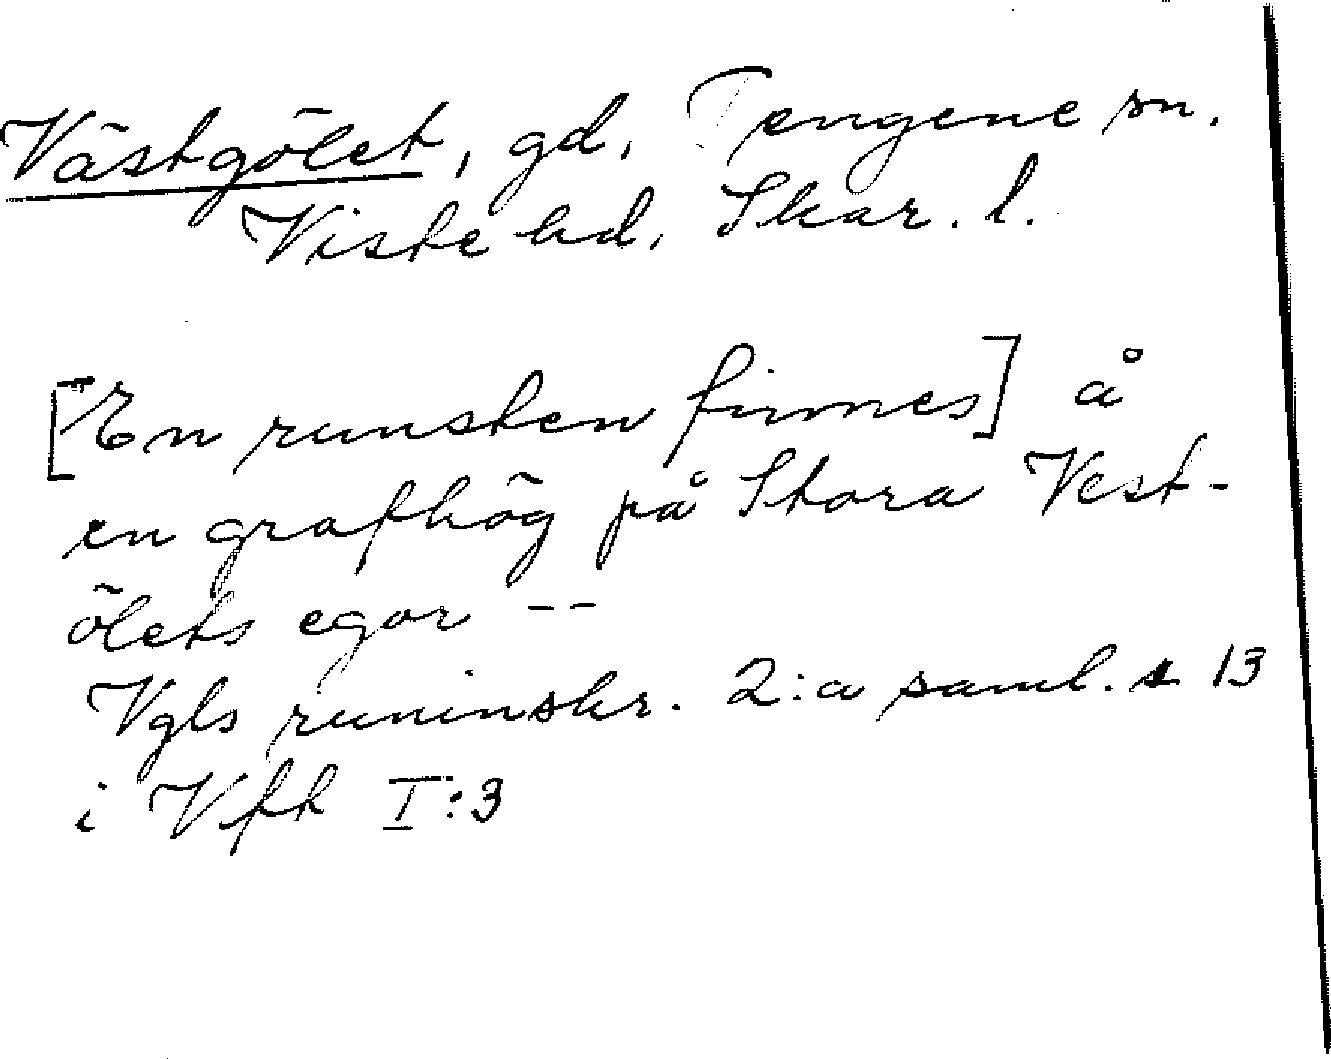 Västgölet, gd, Tengene sn.
Viste hd, Skar. l.
[En runsten finnes] å
en grafhög på Stora Vest-
ölets egor --
Vgls runinskr. 2:a saml. s 13
i Vft I:3